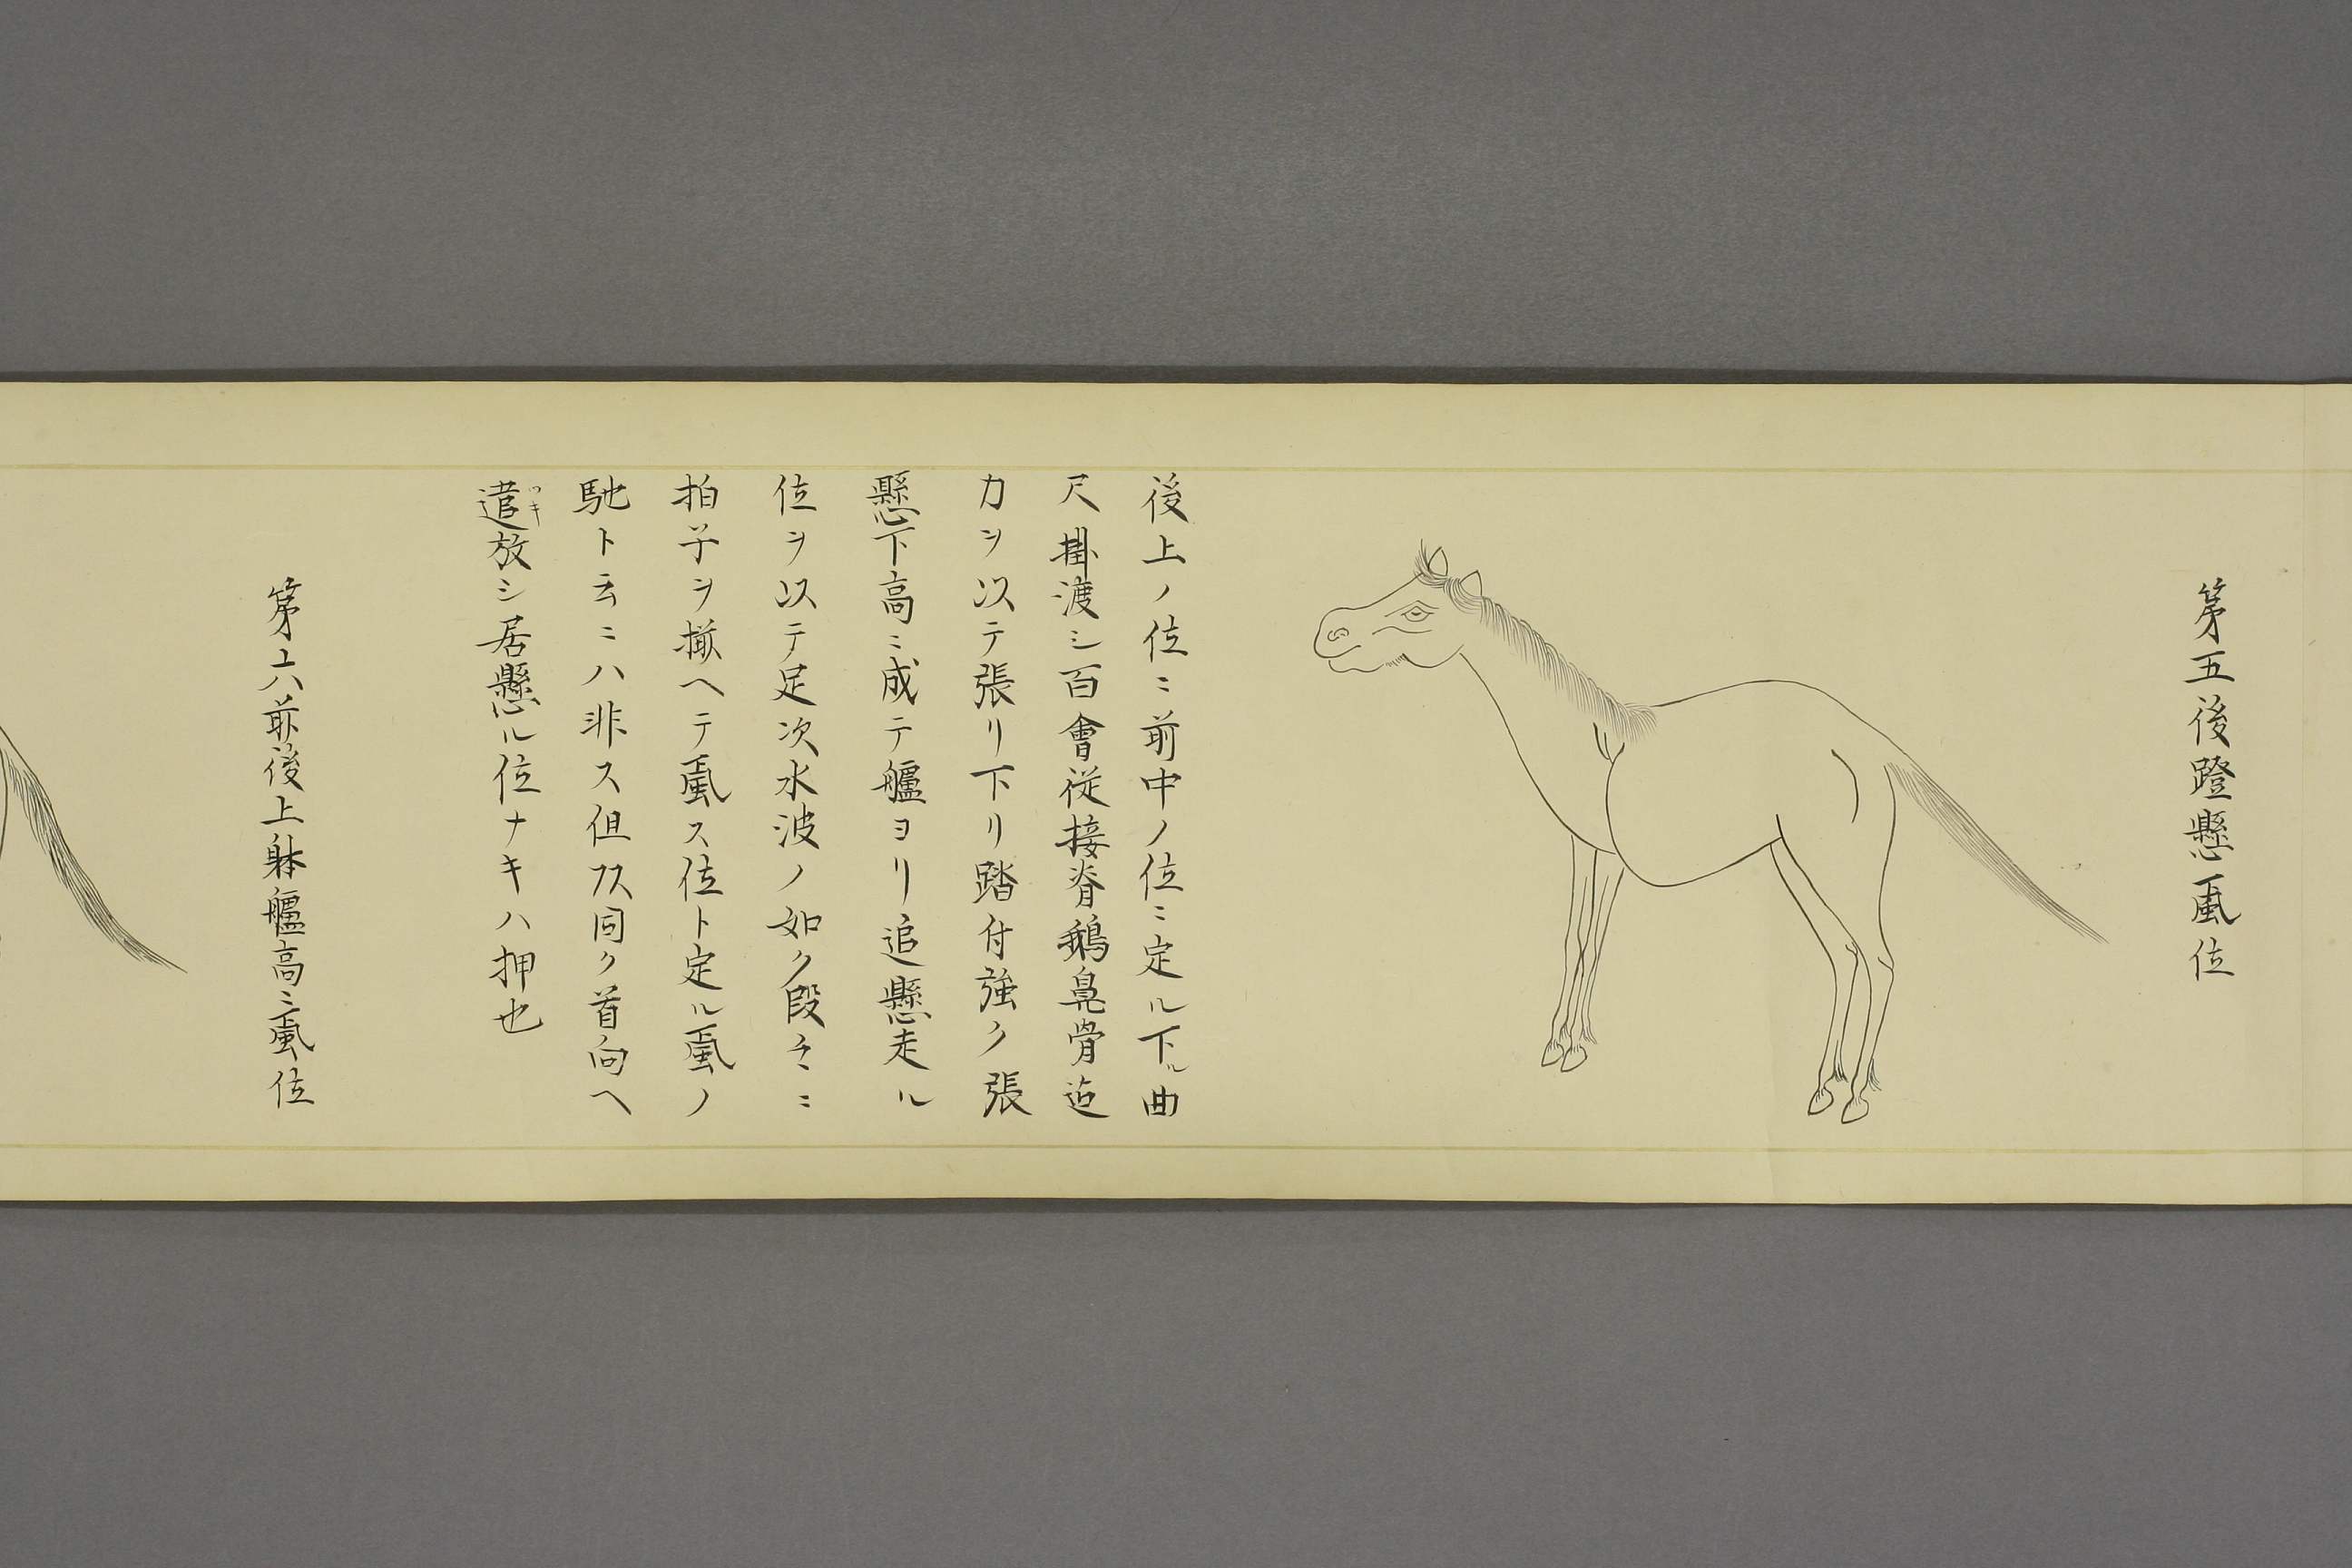 第五後蹬懸䬟位
後上ノ位ニ前中ノ位ニ定ル下ル曲
尺掛渡シ百會従接脊鵝鳧骨迠
力ヲ以テ張リ下リ踏付強ク張
懸下高ニ成テ艫ヨリ追懸走ル
位ヲ以テ足次水波ノ如ク段々ニ
拍子ヲ揃ヘテ䬟ス位ト定ル䬟ノ
馳ト云ニハ非ス但フス同ク首向ヘ
遣放シ居懸ル位ナキハ押也
ツキ
第六前後上躰艫高ニ䬟位